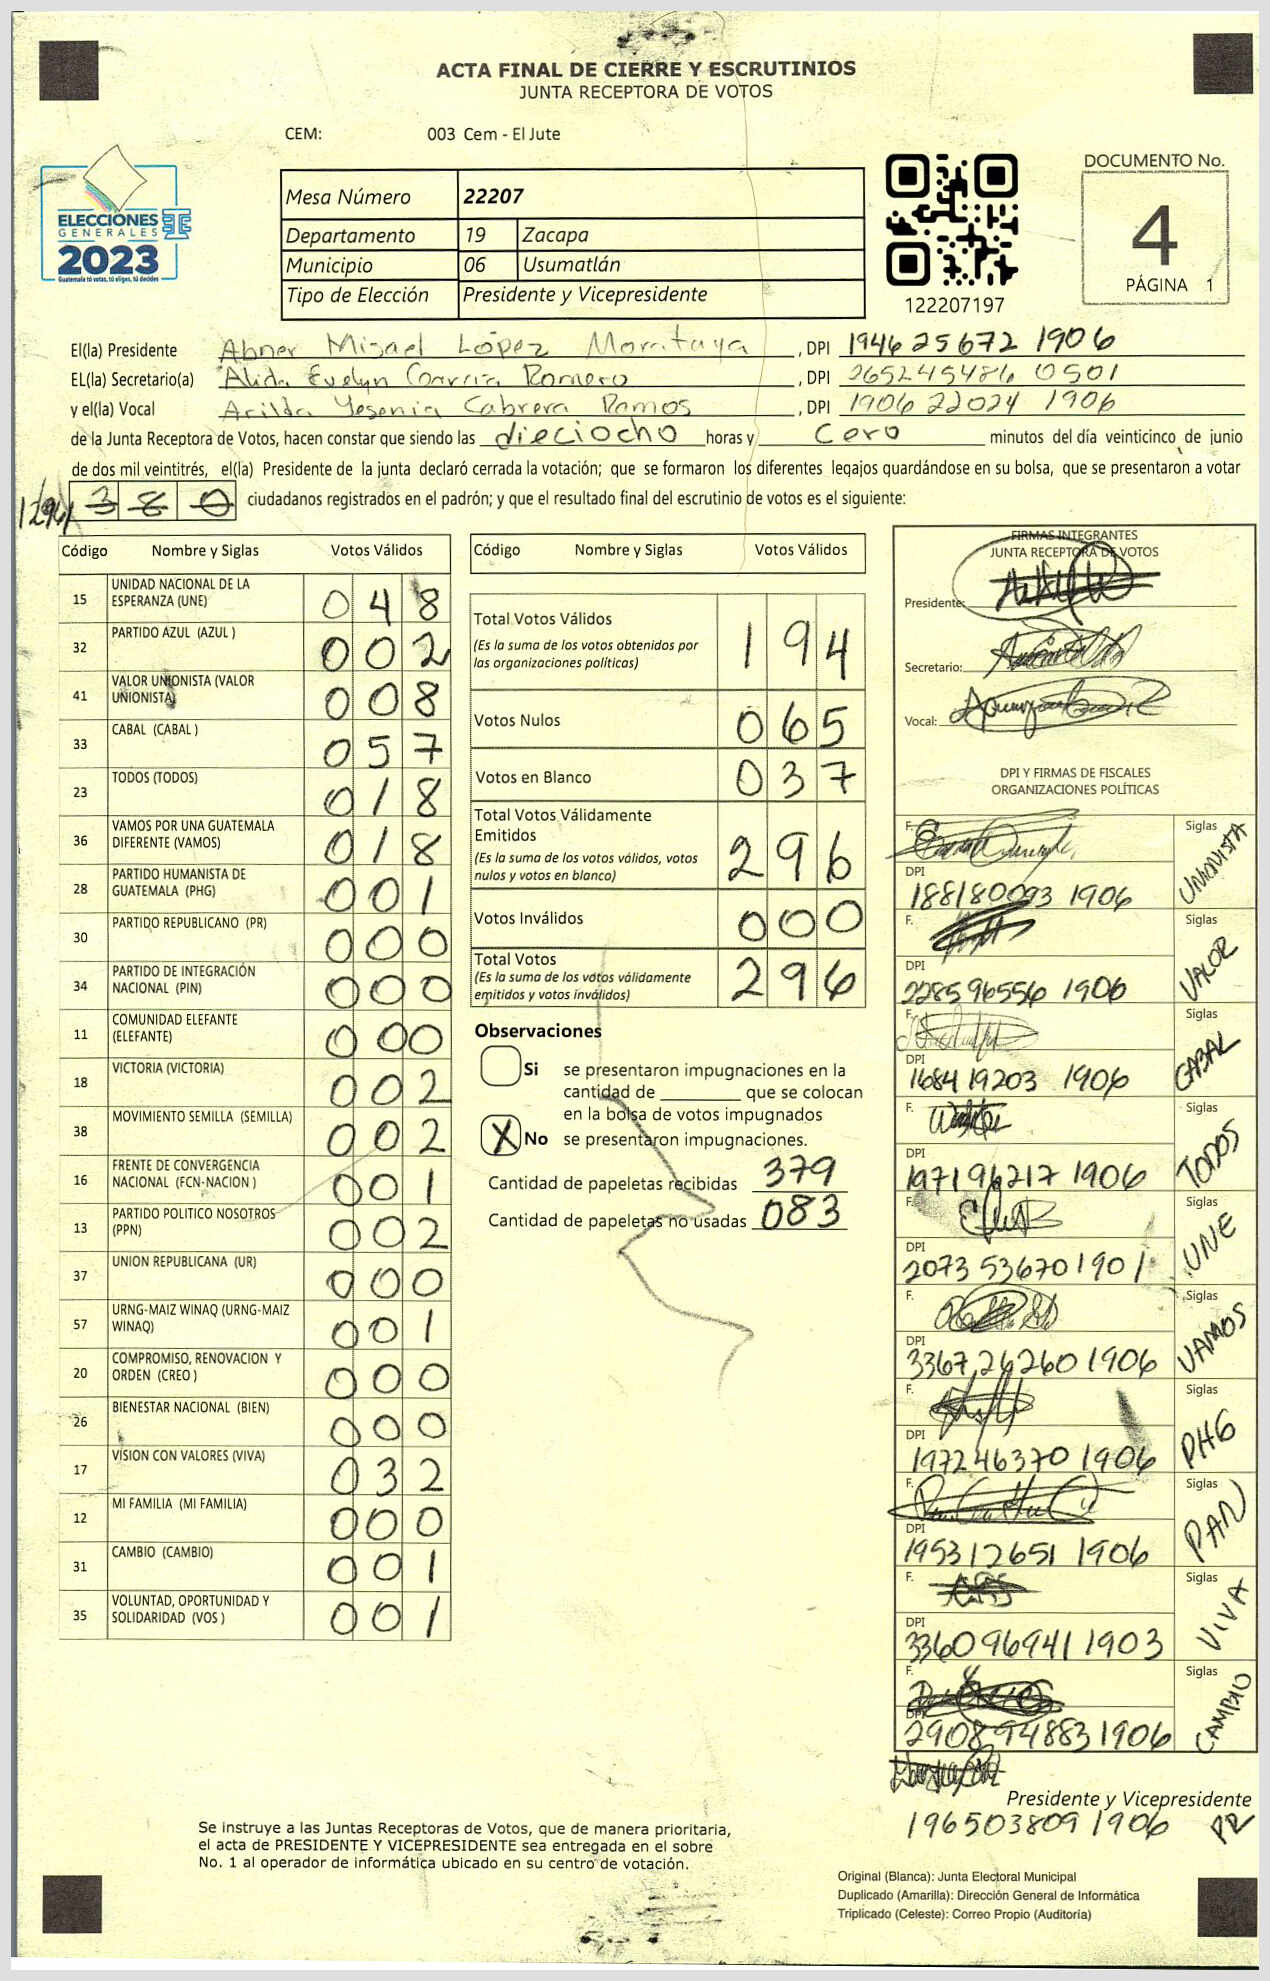 ACTA FINAL DE CIERRE Y ESCRUTINIOS
JUNTA RECEPTORA DE VOTOS
CEM: 003 Cem - El Jute
ELECCIONES
GENERALES
2023
Guatemala tú votas, tú eliges, tú decides
Mesa Número 22207
Departamento 19 Zacapa
Municipio 06 Usumatlán
Tipo de Elección Presidente y Vicepresidente
122207197
DOCUMENTO No.
4
PÁGINA 1
El(la) Presidente Abner Misael López Morataya, DPI 194625672 1906
EL(la) Secretario(a) Alida Evelyn García Romero, DPI 265245486 0501
y el(la) Vocal Acilda Yesenia Cabrera Ramos, DPI 1906 22024 1906
de la Junta Receptora de Votos, hacen constar que siendo las dieciocho horas y cero minutos del día veinticinco de junio
de dos mil veintitrés, el(la) Presidente de la junta declaró cerrada la votación; que se formaron los diferentes legajos guardándose en su bolsa, que se presentaron a votar
380 ciudadanos registrados en el padrón; y que el resultado final del escrutinio de votos es el siguiente:
Código Nombre y Siglas Votos Válidos
15 UNIDAD NACIONAL DE LA ESPERANZA (UNE) 048
32 PARTIDO AZUL (AZUL ) 002
41 VALOR UNIONISTA (VALOR UNIONISTA) 008
33 CABAL (CABAL ) 057
23 TODOS (TODOS) 018
36 VAMOS POR UNA GUATEMALA DIFERENTE (VAMOS) 018
28 PARTIDO HUMANISTA DE GUATEMALA (PHG) 001
30 PARTIDO REPUBLICANO (PR) 000
34 PARTIDO DE INTEGRACIÓN NACIONAL (PIN) 000
11 COMUNIDAD ELEFANTE (ELEFANTE) 000
18 VICTORIA (VICTORIA) 002
38 MOVIMIENTO SEMILLA (SEMILLA) 002
16 FRENTE DE CONVERGENCIA NACIONAL (FCN-NACION ) 001
13 PARTIDO POLITICO NOSOTROS (PPN) 002
37 UNION REPUBLICANA (UR) 000
57 URNG-MAIZ WINAQ (URNG-MAIZ WINAQ) 001
20 COMPROMISO, RENOVACION Y ORDEN (CREO ) 000
26 BIENESTAR NACIONAL (BIEN) 000
17 VISION CON VALORES (VIVA) 032
12 MI FAMILIA (MI FAMILIA) 000
31 CAMBIO (CAMBIO) 001
35 VOLUNTAD, OPORTUNIDAD Y SOLIDARIDAD (VOS ) 001
Código Nombre y Siglas Votos Válidos
Total Votos Válidos 194
(Es la suma de los votos obtenidos por
las organizaciones políticas)
Votos Nulos 065
Votos en Blanco 037
Total Votos Válidamente
Emitidos 296
(Es la suma de los votos válidos, votos
nulos y votos en blanco)
Votos Inválidos 000
Total Votos 296
(Es la suma de los votos válidamente
emitidos y votos inválidos)
Observaciones
Si se presentaron impugnaciones en la
cantidad de ________ que se colocan
en la bolsa de votos impugnados
X No se presentaron impugnaciones.
Cantidad de papeletas recibidas 379
Cantidad de papeletas no usadas 083
FIRMAS INTEGRANTES
JUNTA RECEPTORA DE VOTOS
Presidente:
Secretario:
Vocal:
DPI Y FIRMAS DE FISCALES
ORGANIZACIONES POLÍTICAS
F. Siglas UNIONISTA
DPI 188180093 1906
F. Siglas VALOR
DPI 228596556 1906
F. Siglas CABAL
DPI 168419203 1906
F. Siglas TODOS
DPI 197196217 1906
F. Siglas UNE
DPI 2073 53670 1901
F. Siglas VAMOS
DPI 3367 26260 1906
F. Siglas PHG
DPI 197246370 1906
F. Siglas PAN
DPI 195312651 1906
F. Siglas VIVA
DPI 336096941 1903
F. Siglas CAMBIO
DPI 290894883 1906
Presidente y Vicepresidente
196503809 1906 PR
Se instruye a las Juntas Receptoras de Votos, que de manera prioritaria,
el acta de PRESIDENTE Y VICEPRESIDENTE sea entregada en el sobre
No. 1 al operador de informática ubicado en su centro de votación.
Original (Blanca): Junta Electoral Municipal
Duplicado (Amarilla): Dirección General de Informática
Triplicado (Celeste): Correo Propio (Auditoría)